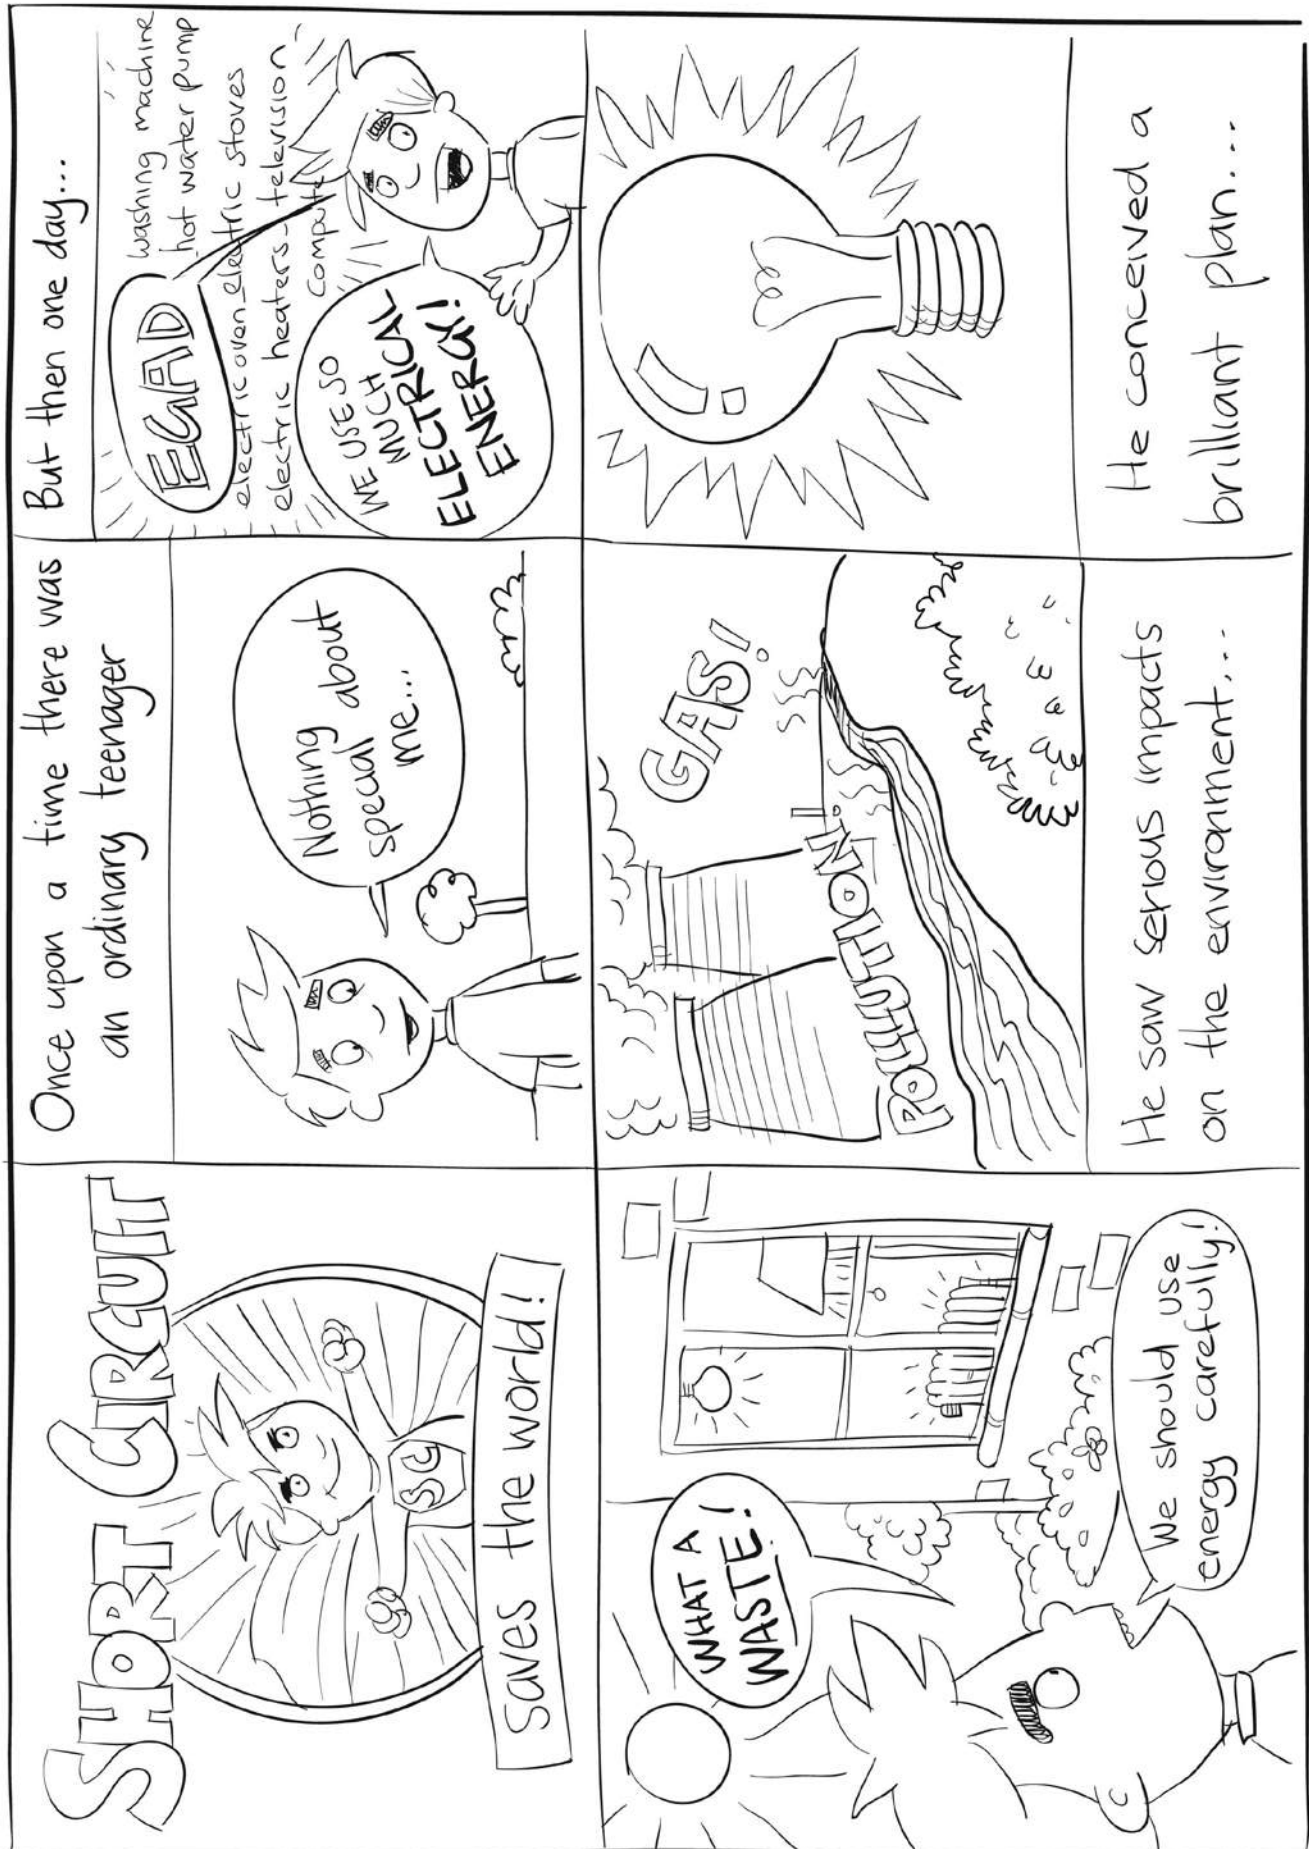 SHORT CIRCUIT
saves the world!
SC
Once upon a time there was
an ordinary teenager
Nothing about
special about
me...
But then one day...
EGAD
washing machine
hot water pump
electric oven electric stoves
electric heaters television
compute
WE USE SO
MUCH
ELECTRICAL
ENERGY!
WHAT A
WASTE!
We should use
energy carefully!
GAS!
POLLUTION!
He saw serious impacts
on the environment...
He conceived a
brilliant plan....